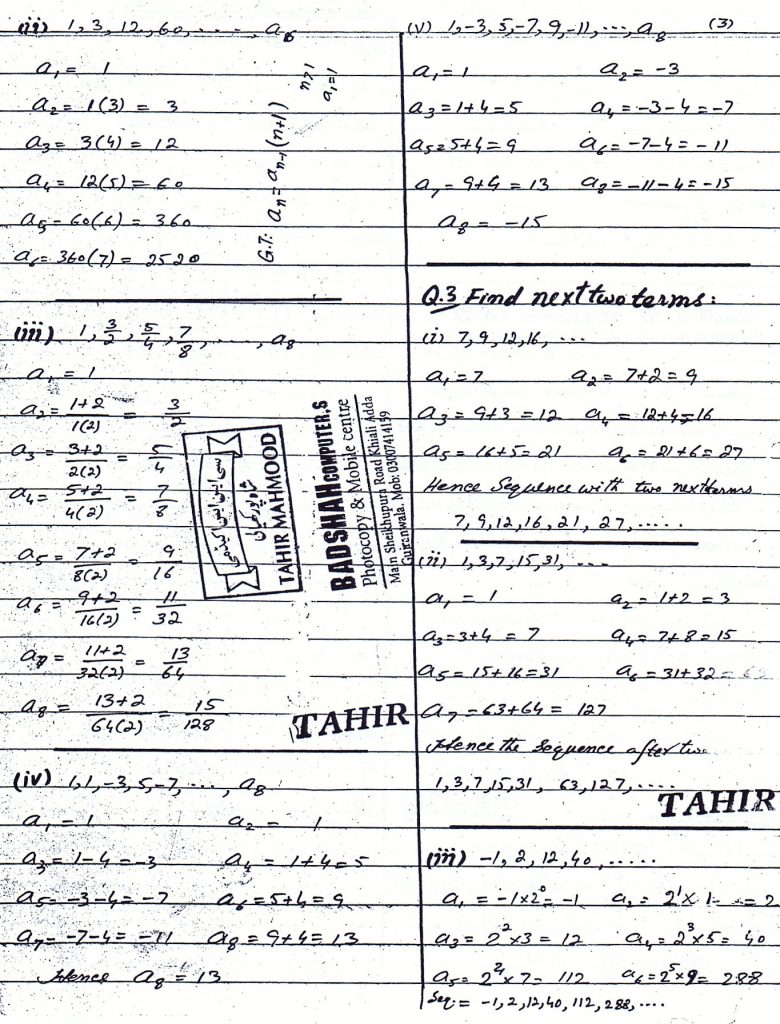 (ii) 1, 3, 12, 60, ....., a6
a1 = 1
a2 = 1(3) = 3
a3 = 3(4) = 12
a4 = 12(5) = 60
a5 = 60(6) = 360
a6 = 360(7) = 2520
G.T: an = an-1 (n+1)
n>1
a1=1
(iii) 1, 3/2, 5/4, 7/8, ....., a8
a1 = 1
a2 = 1+2/1(2) = 3/2
a3 = 3+2/2(2) = 5/4
a4 = 5+2/4(2) = 7/8
a5 = 7+2/8(2) = 9/16
a6 = 9+2/16(2) = 11/32
a7 = 11+2/32(2) = 13/64
a8 = 13+2/64(2) = 15/128
TAHIR MAHMOOD
BADSHAH COMPUTER,S
Photocopy & Mobile centre
Main Sheikhupura Road Khiali Adda
Gujranwala. Mob: 03007414159
TAHIR
(iv) 1, 1, -3, 5, -7, ..., a8
a1 = 1 a2 = 1
a3 = 1-4 = -3 a4 = 1+4 = 5
a5 = -3-4 = -7 a6 = 5+4 = 9
a7 = -7-4 = -11 a8 = 9+4 = 13
Hence a8 = 13
(V) 1, -3, 5, -7, 9, -11, ..., a8 (3)
a1 = 1 a2 = -3
a3 = 1+4 = 5 a4 = -3-4 = -7
a5 = 5+4 = 9 a6 = -7-4 = -11
a7 = 9+4 = 13 a8 = -11-4 = -15
a8 = -15
Q.3 Find next two terms:
(i) 7, 9, 12, 16, ...
a1 = 7 a2 = 7+2 = 9
a3 = 9+3 = 12 a4 = 12+4=16
a5 = 16+5 = 21 a6 = 21+6 = 27
Hence Sequence with two next terms
7, 9, 12, 16, 21, 27, .....
(ii) 1, 3, 7, 15, 31, ...
a1 = 1 a2 = 1+2 = 3
a3 = 3+4 = 7 a4 = 7+8 = 15
a5 = 15+16 = 31 a6 = 31+32 = 63
a7 = 63+64 = 127
Hence the Sequence after two
1, 3, 7, 15, 31, 63, 127, ....
TAHIR
(iii) -1, 2, 12, 40, .....
a1 = -1×2^0 = -1 a2 = 2^1 × 1 = 2
a3 = 2^2 × 3 = 12 a4 = 2^3 × 5 = 40
a5 = 2^4 × 7 = 112 a6 = 2^5 × 9 = 288
Seq:= -1, 2, 12, 40, 112, 288, ....